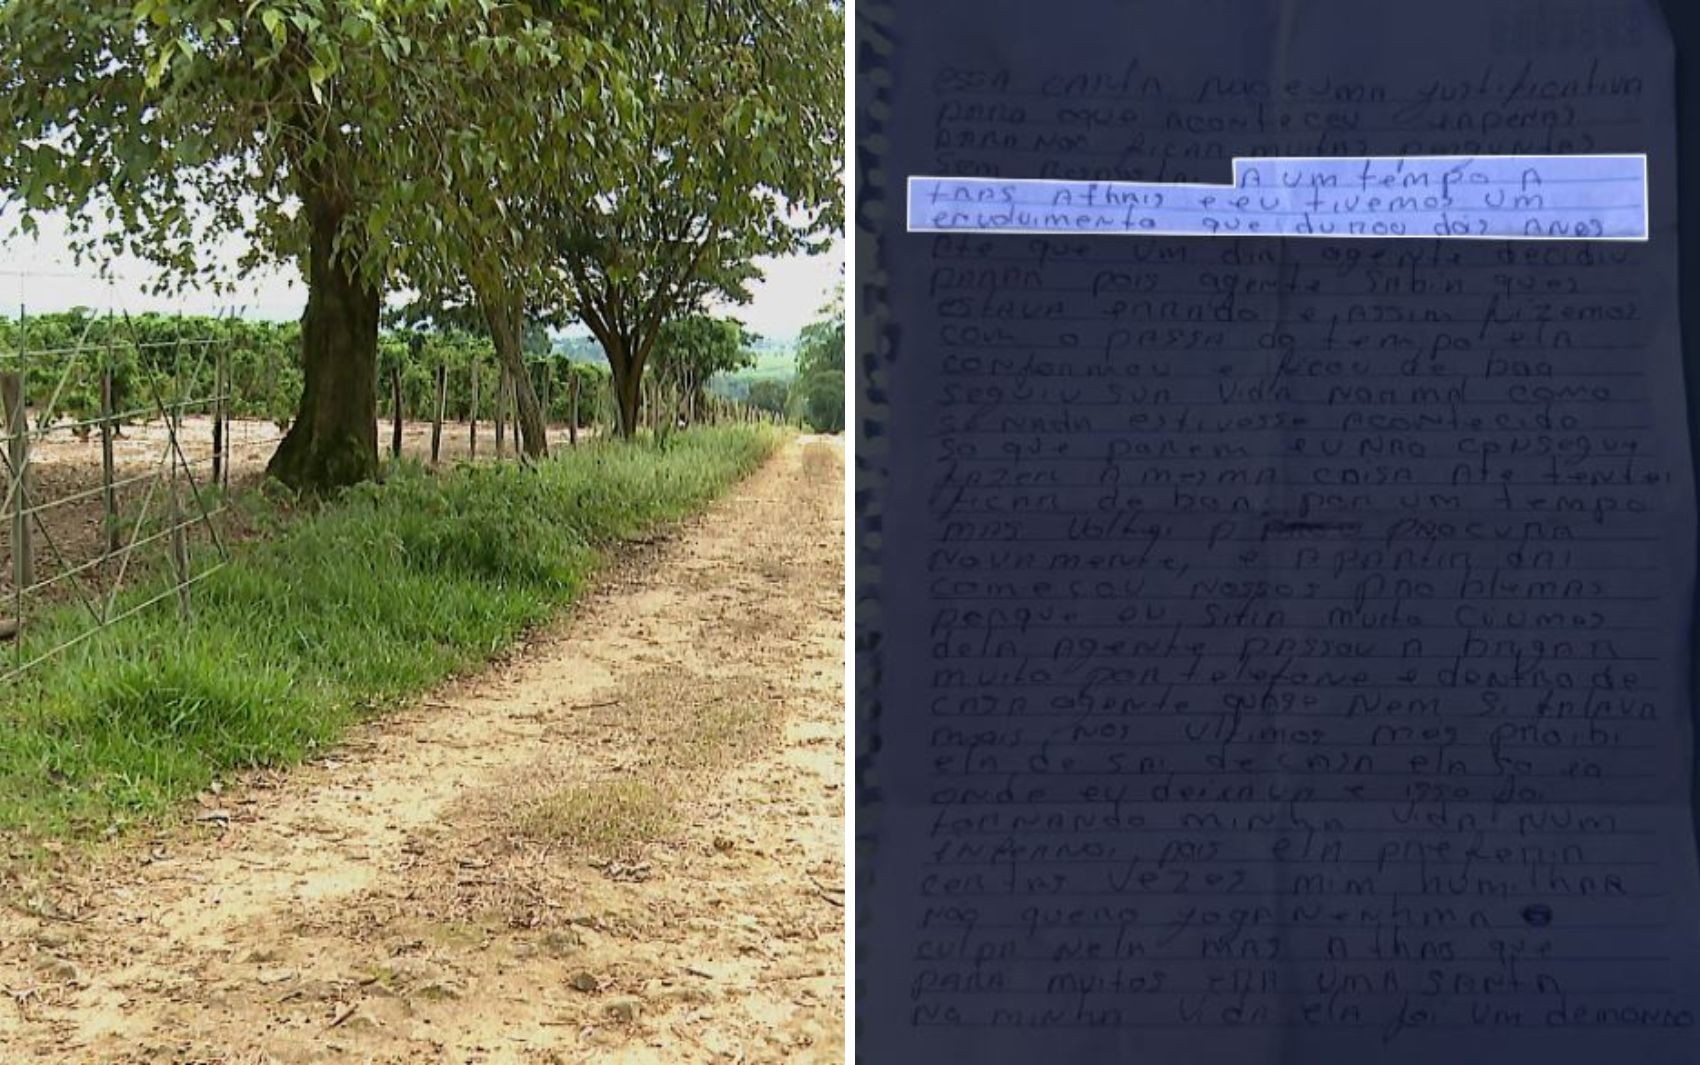 ESSA CARTA NÃO E UMA justificativa
PARA O que ACONTECEU E APENAS
PARA NÃO FICAR muitas PERGUNTAS
Sem Resposta. A um tempo A
TRAS A thais e eu tivemos UM
envouvimento que durou dois ANOS
Ate que um dia agente decidiu
PARAR pois agente SABIA que
ESTAVA ERRADO e ASSIM fizemos
com o PASSA do tempo ELA
conformou e ficou de boa
seguiu SUA VIDA NORMAL como
se NADA estivesse ACONTECIDO
So que PAREM EU NÃO CONSEGUI
FAZER A MESMA COISA Ate tentei
FICAR de boa por um tempo
MAS Voltei A PROCURA
NOVAMENTE, e APARTIR DAI
comeSou Nossos PROBLEMAS
porque eu Sitia muito CIUMES
deLA Agente PASSOU A brigar
muito por telefone e dentro de
CASA agente quase Nem Si FALAVA
mais, Nos Ultimos mes proibi
eLA de SAi de CASA eLA So ia
onde eu deixava e isso foi
TORNANDO MINHA VIDA NUM
INFERNO, pois eLA PREFERIA
CERTAS VEZES mim humilhAR
Não quero JOGA NENHUMA
culpa NELA MAS A thais que
PARA muitos ERA UMA SANTA
NA minha Vida eLA foi um demonio